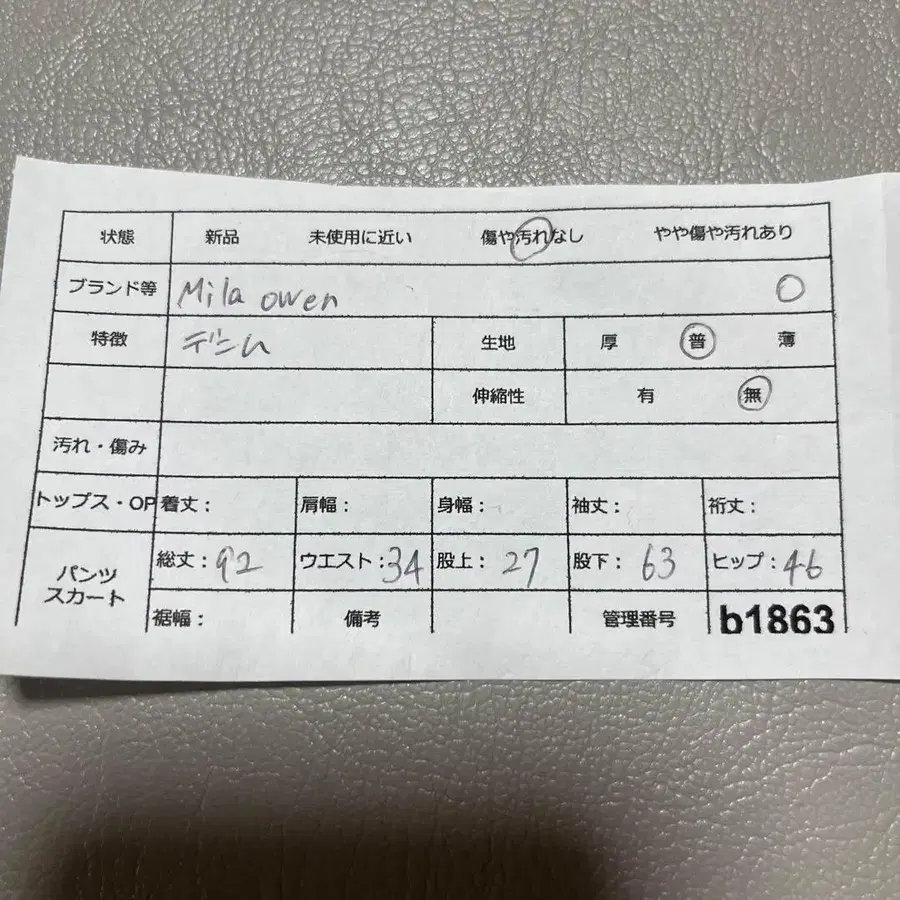 状態 新品 未使用に近い 傷や汚れなし やや傷や汚れあり
ブランド等 Mila owen ○
特徴 デニム 生地 厚 普 薄
伸縮性 有 無
汚れ・傷み
トップス・OP 着丈： 肩幅： 身幅： 袖丈： 裄丈：
パンツ 総丈：92 ウエスト：34 股上：27 股下：63 ヒップ：46
スカート 裾幅： 備考 管理番号 b1863